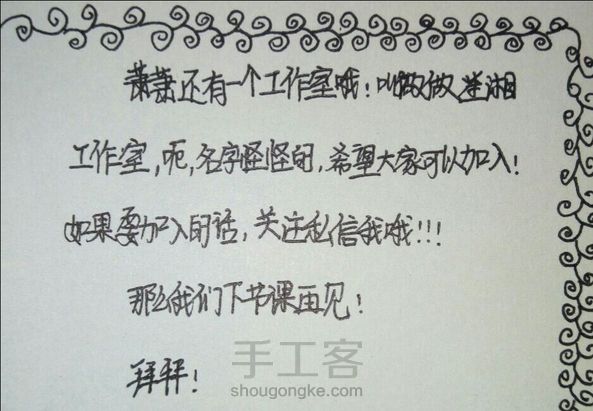 萧萧还有一个工作室哦！叫做做潇湘
工作室，呃，名字怪怪的，希望大家可以加入！
如果要加入的话，关注私信我哦！！！
那么我们下节课再见！
拜拜！
手工客
shougongke.com